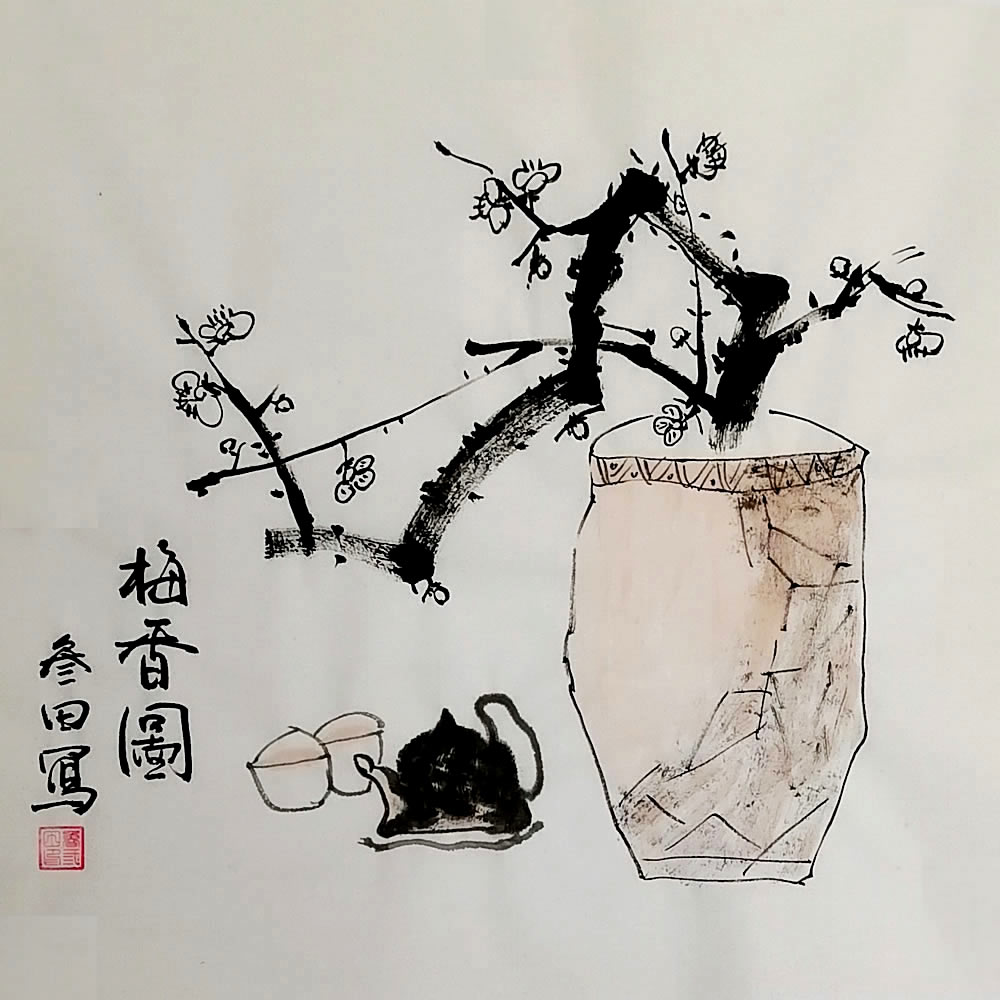 梅香圖
叅田寫